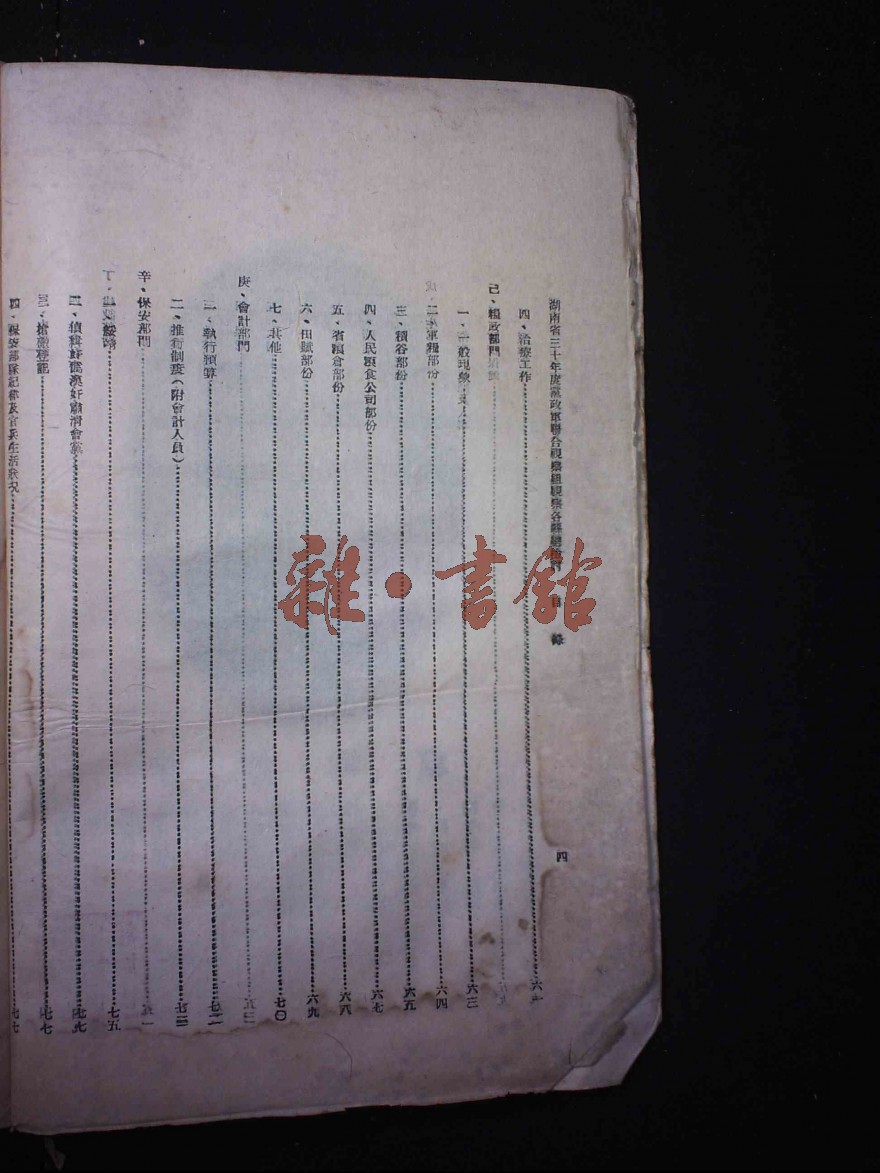 湖南省三十年度黨政軍聯合視察組視察各縣 目錄 四
四、治療工作
己、糧政部門
一、一般現象 六三
二、軍糧部份 六四
三、積谷部份 六五
四、人民糧食公司部份 六七
五、省縣倉部份 六八
六、田賦部份 六九
七、其他 七〇
庚、會計部門
一、執行預算
二、推行制度(附會計人員)
辛、保安部門
綏靖 七五
肅清會黨
三、槍 登記 七七
四、保安部隊紀律及官兵生活狀況 七七
雜·書館